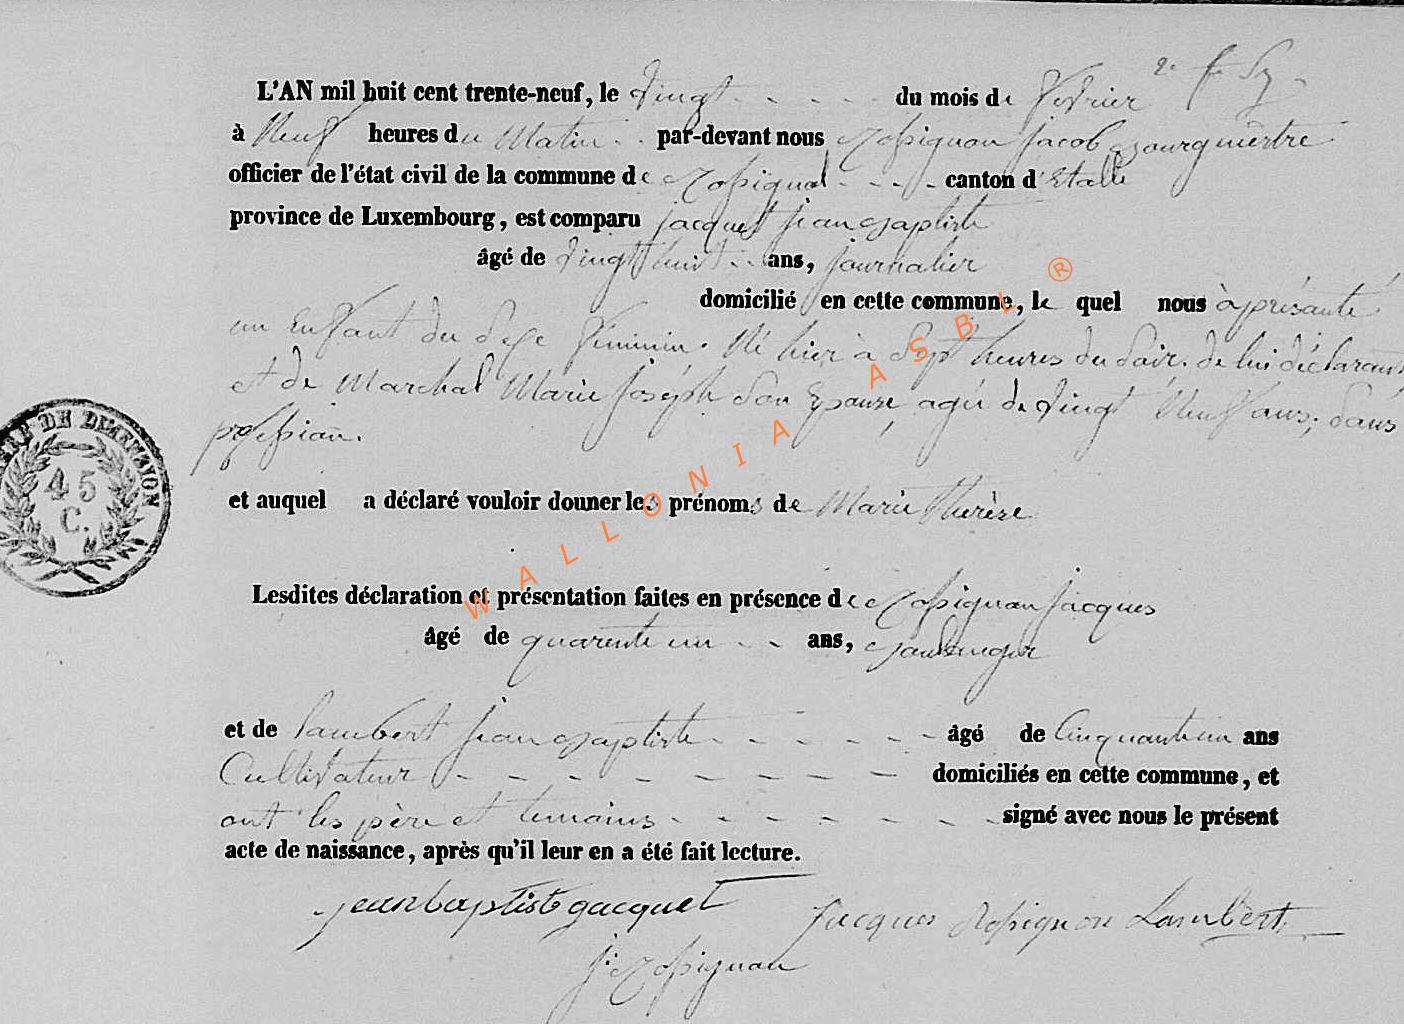 2e f Sy
L'AN mil huit cent trente-neuf, le Vingt - - - - du mois de Fevrier
à Neuf heures du Matin - - par-devant nous Rossignon jacob Bourgmèstre
officier de l'état civil de la commune de Rossignol - - - canton d'Etalle
province de Luxembourg, est comparu jacquet jean Baptiste
âgé de Vingt huit - - ans, journalier
domicilié en cette commune, le quel nous à présanté
un Enfant du Sexe Féminin. Né hier à Sept heures du Soir. de lui déclarant
et de Marchal Marie joséph Son Epouse, agée de Vingt Neuf ans, Sans
profession.
et auquel a déclaré vouloir donner les prénoms de Marie Thérèse
Lesdites déclaration et présentation faites en présence de Rossignon jacques
âgé de quarente un - - ans, Boulenger
et de lambert jean Baptiste - - - - - - âgé de Cinquante un ans
Cultivateur - - - - - - - - - domiciliés en cette commune, et
ont les père et temains - - - - - - - signé avec nous le présent
acte de naissance, après qu'il leur en a été fait lecture.
jean baptiste jacquet
Jacques Rossignon Lambert
j: Rossignon
TIMBRE DE DIMENSION
45
C.
WALLONIA ASBL ®